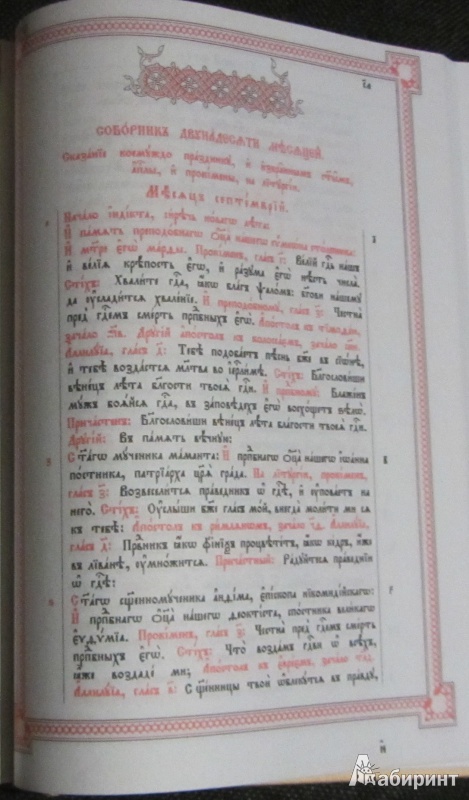 СОБО́РНИКЪ ДВУНА́ДЕСѦТИ МѢ́СѦЦЕЙ.
Сказа́нїе коемꙋ́ждо пра́здникꙋ, и҆ и҆збра̑ннымъ ст҃ы̑мъ,
а҆пⷭ҇лы, и҆ проки́мены, на лїтꙋргі́и.
Мѣ́сѧцъ септе́мврїй.
Нача́ло і҆ндї́кта, си́рѣчь но́вагѡ лѣ́та:
И҆ па́мѧть преподо́бнагѡ ѻ҆ц҃а̀ на́шегѡ сѷмеѡ́на сто́лпника:
И҆ мт҃ре є҆гѡ̀ ма́рѳы. Проки́менъ, гла́съ г҃: Ве́лїй гдⷭ҇ь на́шъ
и҆ ве́лїѧ крѣ́пость є҆гѡ̀, и҆ ра́зꙋма є҆гѡ̀ нѣ́сть числа̀.
Сті́хъ: Хвали́те гдⷭ҇а, ꙗ҆́кѡ бла́гъ ѱало́мъ: бг҃ови на́шемꙋ
да ᲂу҆слади́тсѧ хвале́нїе. И҆ преподо́бномꙋ, гла́съ з҃: Честна̀
пред̾ гдⷭ҇емъ сме́рть прпⷣбныхъ є҆гѡ̀. А҆по́столъ къ тїмоѳе́ю,
зача́ло Дрꙋгі́й а҆по́столъ къ колосса́ємъ, зача́ло
А҆ллилꙋ́їа, гла́съ д҃: Тебѣ̀ подоба́етъ пѣ́снь бж҃е въ сїѡ́нѣ,
и҆ тебѣ̀ возда́стсѧ мл҃тва во і҆ерⷭ҇ли́мѣ. Сті́хъ: Бл҃гослови́ши
вѣне́цъ лѣ́та бла́гости твоеѧ̀ гдⷭ҇и. И҆ прпⷣбномꙋ: Бл҃же́нъ
мꙋ́жъ боѧ́йсѧ гдⷭ҇а, въ за́повѣдехъ є҆гѡ̀ восхо́щетъ ѕѣлѡ̀.
Прича́стенъ: Бл҃гослови́ши вѣне́цъ лѣ́та бла́гости твоеѧ̀ гдⷭ҇и.
Дрꙋгі́й: Въ па́мѧть вѣ́чнꙋю:
Ст҃а́гѡ мꙋ́ченика ма́манта: И҆ прпⷣбнагѡ ѻ҆ц҃а̀ на́шегѡ і҆ѡа́нна
по́стника, патрїа́рха цр҃ѧ̀ гра́да. На лїтꙋргі́и, проки́менъ,
гла́съ з҃: Возвесели́тсѧ пра́ведникъ ѡ҆ гдⷭ҇ѣ, и҆ ᲂу҆пова́етъ на
него̀. Сті́хъ: Оу҆слы́ши бж҃е гла́съ мо́й, внегда̀ моли́ти ми сѧ
къ тебѣ̀: А҆по́столъ къ ри́млѧнѡмъ, зача́ло А҆ллилꙋ́їа,
гла́съ д҃: Првⷣникъ ꙗ҆́кѡ фі́нїѯъ процвѣте́тъ, ꙗ҆́кѡ ке́дръ, и҆́же
въ лїва́нѣ, ᲂу҆мно́житсѧ. Прича́стный: Ра́дꙋйтесѧ пра́веднїи
ѡ҆ гдⷭ҇ѣ:
Ст҃а́гѡ сщ҃енномꙋ́ченика а҆нѳі́ма, є҆пі́скопа нїкомиді́йскагѡ:
И҆ прпⷣбнагѡ ѻ҆ц҃а̀ на́шегѡ ѳеокті́ста, по́стника вели́кагѡ
є҆ѵѳѷ́мїа. Проки́менъ, гла́съ з҃: Честна̀ пред̾ гдⷭ҇емъ сме́рть
прпⷣбныхъ є҆гѡ̀. Сті́хъ: Что̀ возда́мъ гдⷭ҇ви ѡ҆ всѣ́хъ,
ꙗ҆̀же воздадѐ ми; А҆по́столъ къ є҆вре́ємъ, зача́ло
А҆ллилꙋ́їа, гла́съ в҃: Сщ҃е́нницы твоѝ ѡ҆блекꙋ́тсѧ въ пра́вдꙋ,
и҆
Лабиринт